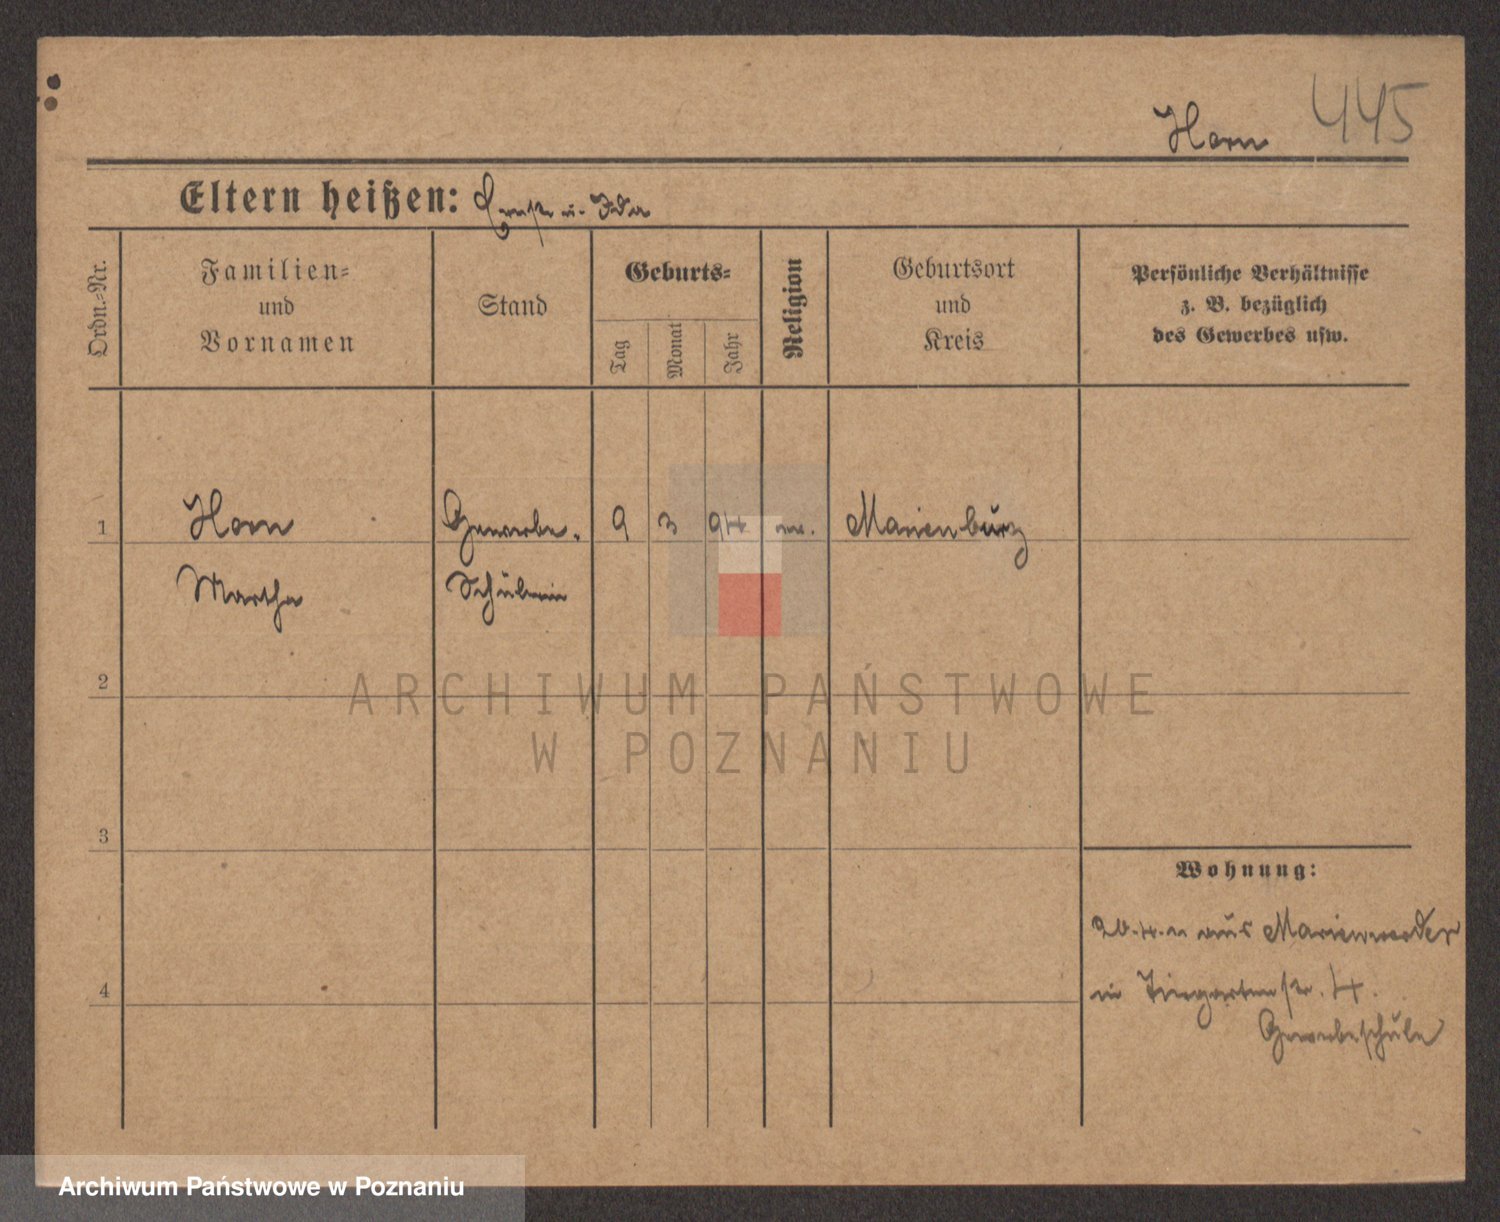 Horn 445
Eltern heißen: Ernst u. Ida
Ordn.-Nr.
Familien-
und
Vornamen
Stand
Geburts-
Tag
Monat
Jahr
Religion
Geburtsort
und
Kreis
Persönliche Verhältnisse
z. B. bezüglich
des Gewerbes usw.
1 Horn Gewerbe- 9 3 94 ev. Marienburg
Martha Schülerin
2
ARCHIWUM PAŃSTWOWE
W POZNANIU
3
Wohnung:
aus Marienwerder
4
in Tiergartenstr. 4.
Gewerbeschule
Archiwum Państwowe w Poznaniu